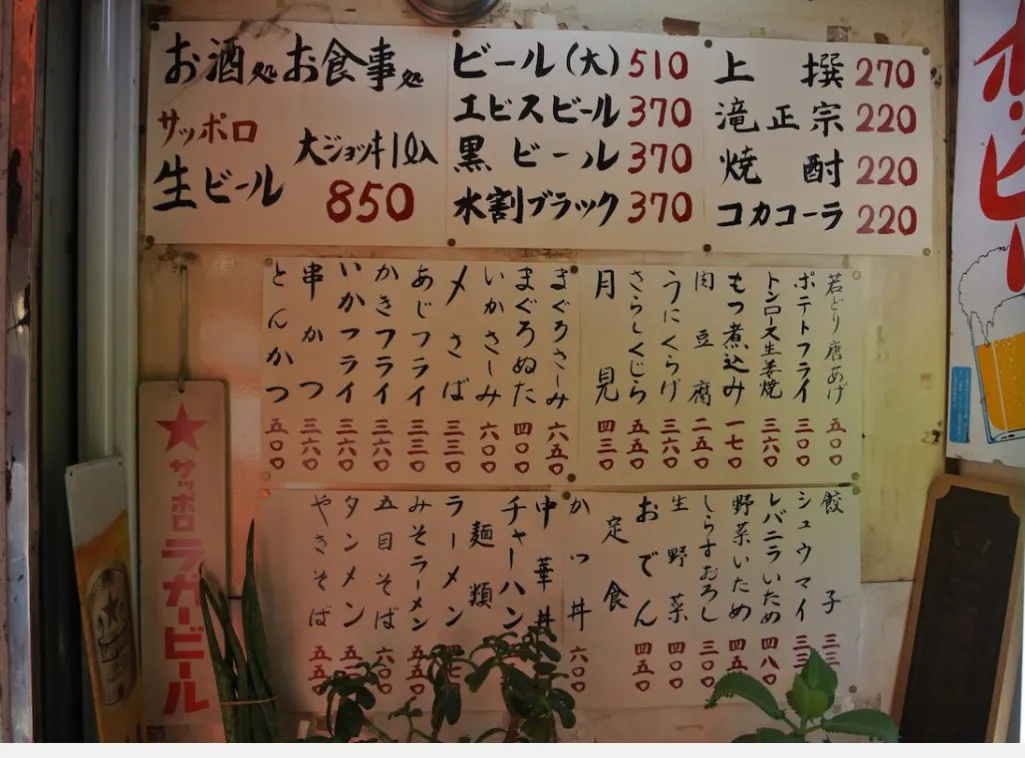 お酒処お食事処
サッポロ
生ビール
大ジョッキ1ℓ入
850
ビール(大) 510
エビスビール 370
黒ビール 370
水割ブラック 370
上撰 270
滝正宗 220
焼酎 220
コカコーラ 220
若どり唐あげ 五〇〇
ポテトフライ 三〇〇
トンロース生姜焼 三六〇
もつ煮込み 一七〇
肉豆腐 二五〇
うにくらげ 三六〇
さらしくじら 五五〇
月見 四三〇
まぐろさしみ 六五〇
まぐろぬた 四〇〇
いかさしみ 六〇〇
〆さば 三三〇
あじフライ 三三〇
かきフライ 三六〇
いかフライ 三六〇
串かつ 三六〇
とんかつ 五〇〇
餃子
シュウマイ
レバニラいため 四八〇
野菜いため 四五〇
しらすおろし 三〇〇
生野菜 四〇〇
おでん 四五〇
定食
かつ丼 六〇〇
中華丼
チャーハン
麺類
ラーメン
みそラーメン
五目そば 六〇〇
タンメン
やきそば
サッポロ
ラガービール